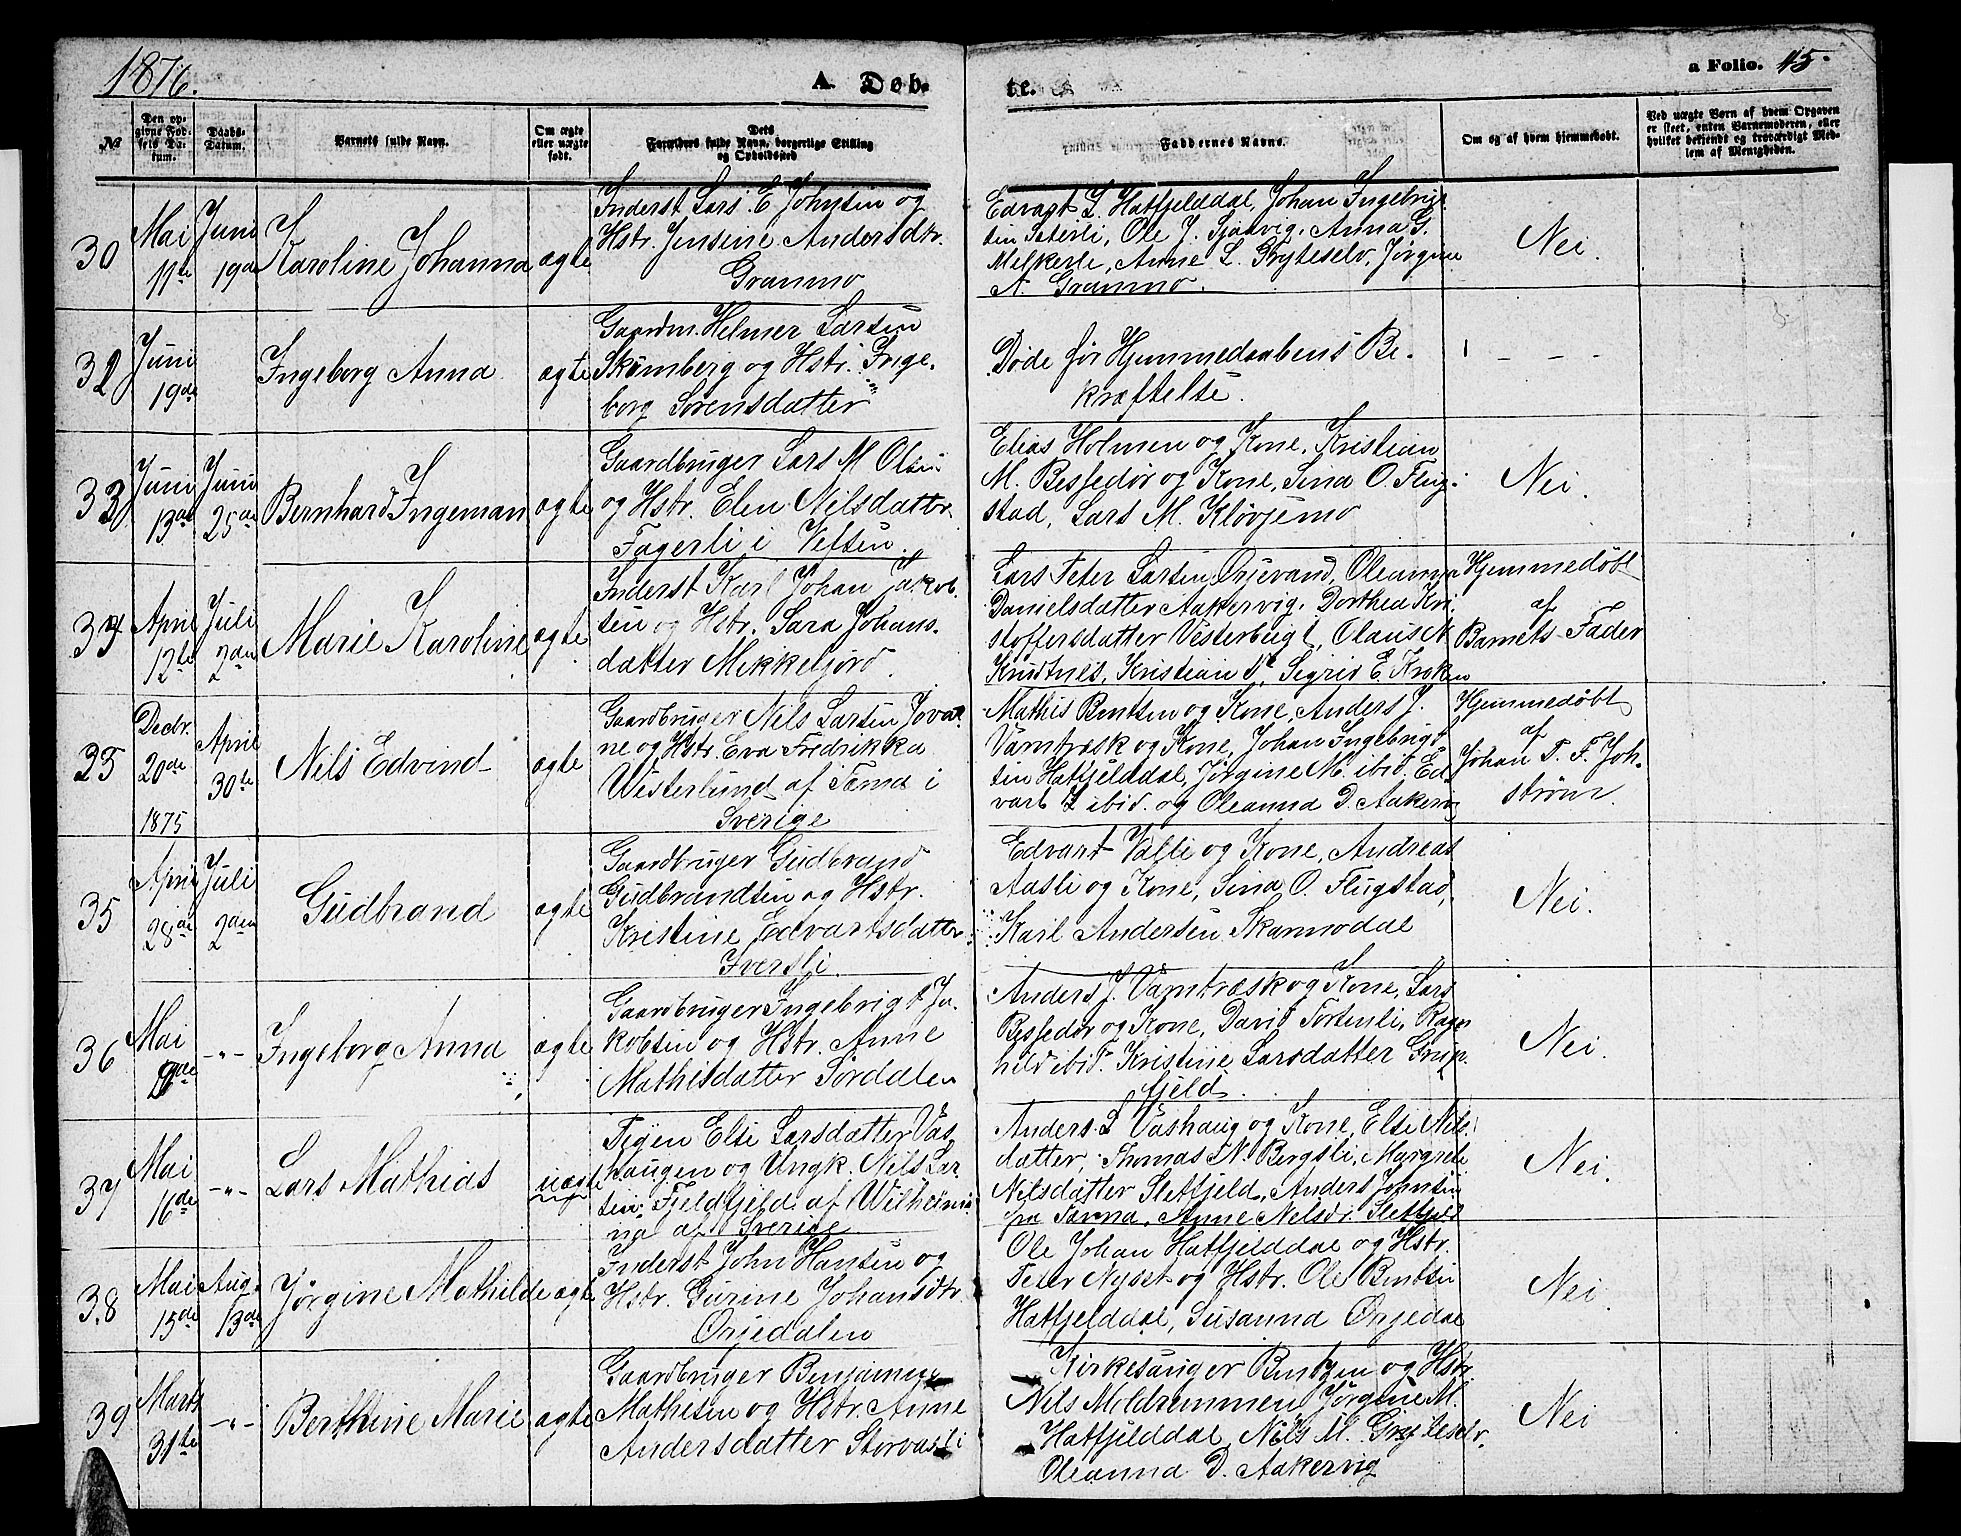 1876.
A. Døb-
te.
a Folio. 45.
№
Den op-
givne Fød-
sels Da-
tum.
Daabs-
Datum.
Barnets fulde Navn.
Om ægte
eller uægte
født.
Dets
Forældres fulde Navn, borgerlige Stilling
og Opholdssted
Faddernes Navne.
Om og af hvem hjemmedøbt.
Ved uægte Børn af hvem Opgaven
er skeet, enten Barnemoderen, eller
hvilket bekjendt og troværdigt Med-
lem af Menigheden.
30
Mai
11te
Juni
19de
Karoline Johanna
ægte
Inderst Lars E Johnsen og
Hstr. Jensine Andersdtr.
Granmo
Edvart L. Hatfjelddal, Johan Ingebrigt
sen Sæterli, Ole J. Sjaavig, Anna G.
Melkerli, Anne L. Gryteselv, Jørgine
A. Granmo.
Nei.
32
Juni
19de
Ingeborg Anna
ægte
Gaardm. Helmer Larsen
Skumberg og Hstr. Inge-
borg Sørensdatter
Døde før Hjemmedaabens Be-
kræftelse.
33
Juni
13de
Juni
25de
Bernhard Ingeman
ægte
Gaardbruger Lars M Olsen
og Hstr. Elen Nilsdatter
Fagerli i Vefsen.
Elias Holmen og Kone, Kristian
M. Bessedør og Kone, Sina O. Flug-
stad, Lars M. Kløvjemo
Nei.
34
April
12te
Juli
2den
Marie Karoline
ægte
Inderst Karl Johan Jakob-
sen og Hstr. Sara Johans-
datter Mikkeljord.
Lars Peter Larsen Ørjevand, Oleanna
Danielsdatter Aakervig, Dorthea Kri-
stoffersdatter Vesterbugt, Olaus N
Krudtnes, Kristian N, Sigrid E. Kroken
Hjemmedøbt
af
Barnets Fader
25
Decbr.
20de
1875
April
30te
Nils Edvind
ægte
Gaardbruger Nils Larsen Jovat-
ne og Hstr. Eva Fredrikka
Westerlund af Tærna i
Sverige
Mathis Bentsen og Kone, Anders J.
Vamtræsk og Kone, Johan Ingebrigt
sen Hatfjelddal, Jørgine M. ibid. Ed-
vart L ibid. og Oleanna D. Aakervig
Hjemmedøbt
af
Johan P. F. Joh-
strøm.
35
April
28de
Juli
2den
Gudbrand
ægte
Gaardbruger Gudbrand
Gudbrandsen og Hstr.
Kristine Edvartsdatter
Iversli.
Edvart Valli og Kone, Andreas
Aasli og Kone, Sina O. Flugstad,
Karl Andersen Skarmodal
Nei.
36
Mai
-"-
Ingeborg Anna
ægte
Gaardbruger Ingebrigt Ja-
kobsen og Hstr. Anne
Mathisdatter Sørdalen
Anders J. Vamtræsk og Kone, Lars
Bessedør og Kone, David Tortenli, Ragn
hild ibid. Kristine Larsdatter Grup-
fjeld.
Nei.
37
Mai
16de
-"-
Lars Mathias
uægte
Pigen Else Larsdatter Vas-
haugen og Ungk. Nils Lar
sen Fjeldfjeld af Wilhelmi-
na af Sverige
Anders L Vashaug og Kone, Else Nils-
datter, Thomas N. Bergsli, Margrete
Nilsdatter Sletfjeld, Anders Johnsen
fra Tærna, Anne Nilsdr. Sletfjeld
Nei.
38
Mai
15de
Aug.
13de
Jørgine Mathilde
ægte
Inderst John Hansen og
Hstr. Gurine Johansdtr.
Ørjedalen
Ole Johan Hatfjelddal og Hstr.
Peter Nyset og Hstr. Ole Bentsen
Hatfjelddal, Susanna Ørjedal
Nei.
39
Marts
31te
-"-
Berthine Marie
ægte
Gaardbruger Benjamin
Mathisen og Hstr. Anne
Andersdatter Storvasli
Kirkesanger Bentzen og Hstr
Nils Moldremmen, Jørgine M.
Hatfjelddal, Nils M. Gryteselv,
Oleanna D. Aakervig
Nei